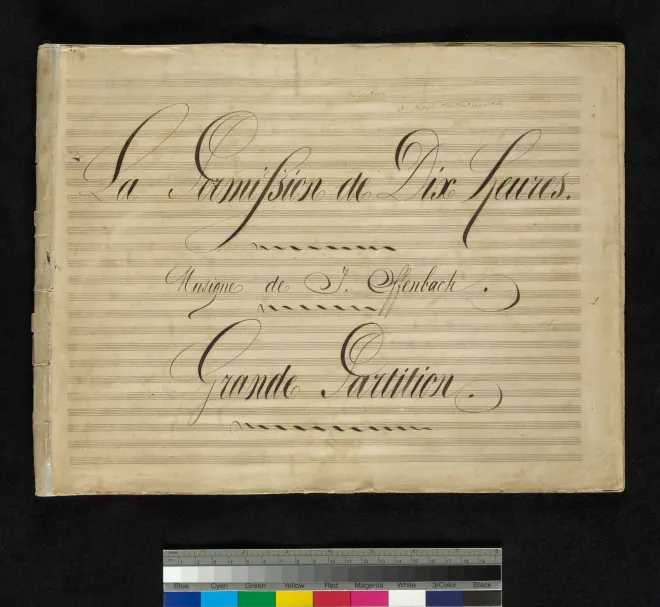 La Permission de Dix heures.
Musique de J. Offenbach.
Grande Partition.
Blue Cyan Green Yellow Red Magenta White 3/Color Black